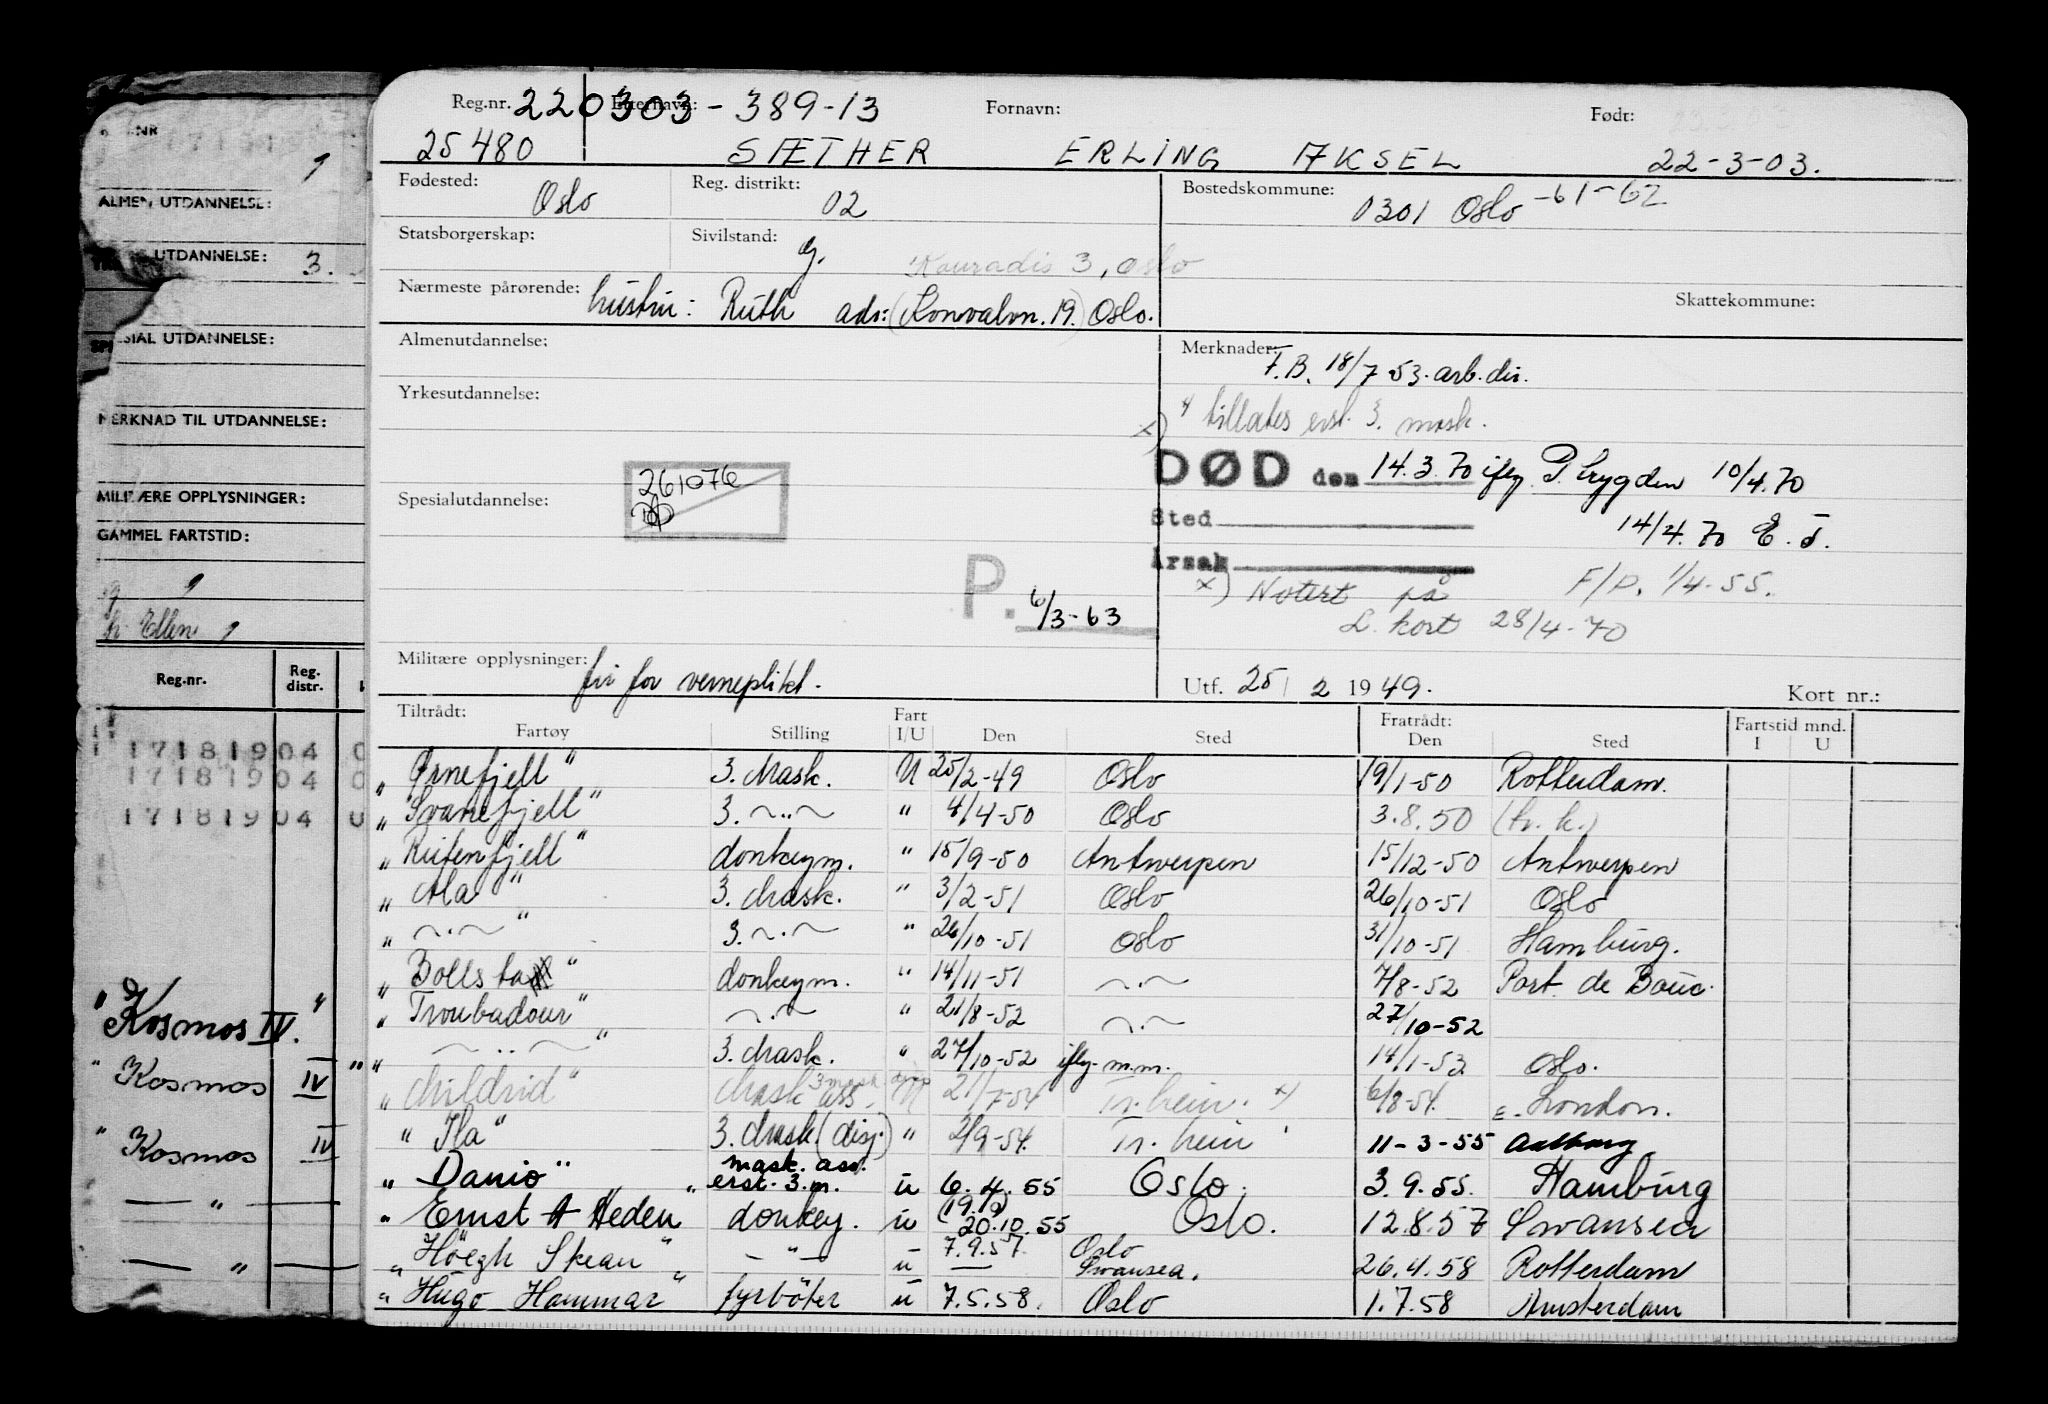 Reg.nr. 220303-389-13 Etternavn: Fornavn: Født:
25480 SÆTHER ERLING AKSEL 22-3-03.
Fødested: Oslo Reg. distrikt: 02 Bostedskommune: 0301 Oslo -61-62
Statsborgerskap: Sivilstand: g.
3, Oslo
Nærmeste pårørende: hustru: Ruth adr: (Konvalvn. 19.) Oslo. Skattekommune:
Almenutdannelse: Merknader: F.B. 18/7 53. arb. dir.
Yrkesutdannelse:
x) tillates erst. 3. mask.
DØD den 14.3.70 iflg. P. trygden 10/4.70
261076
Spesialutdannelse:
Sted 14/4.70 E. S.
Årsak
x) Notert på F/P. 1/4-55.
L. kort 28/4-70
P. 6/3-63
Militære opplysninger: fri for verneplikt.
Utf. 25/2 1949. Kort nr.:
Tiltrådt: Fart Fratrådt: Fartstid mnd.
Fartøy Stilling I/U Den Sted Den Sted I U
"Ørnefjell" 3. Mask. U 25/2-49 Oslo 19/1-50 Rotterdam.
"Svanefjell" 3. ~..~ " 4/4-50 Oslo 3.8.50 (tr. k.)
"Rutenfjell" donkeym. " 15/9-50 Antwerpen 15/12-50 Antwerpen
"Ala" 3. Mask. " 3/2-51 Oslo 26/10-51 Oslo
" ~.~ " 3. ~.~ " 26/10-51 Oslo 31/10-51 Hamburg.
"Bollsta" donkeym. " 14/11-51 ~.~ 7/8-52 Port de Bouc.
"Troubadour" ~.~ " 21/8-52 ~.~ 27/10-52
" ~..~ " 3. Mask. " 27/10-52 iflg. m.m. 14/1-53 Oslo.
"Mildrid" Mask ass. 3 mask U 21/7-54 Tr.heim. x) 6/8-54. E. London.
"Ila" 3. Mask. (disp.) " 2/9-54. Tr. heim 11-3-55 Aalborg
mask. ass.
"Danio" erst. 3.m. u 6.4.55 Oslo. 3.9.55. Hamburg
(19.9)
"Ernst A Heden" donkey. u 20.10.55 Oslo. 12.8.57 Swansea
"Höegh Skean" — " — u 7.9.57. Oslo
— Swansea. 26.4.58 Rotterdam
"Hugo Hammar" fyrböter u 7.5.58. Oslo 1.7.58 Amsterdam
NR
ALMEN UTDANNELSE:
UTDANNELSE: 3.
SIAL UTDANNELSE:
MERKNAD TIL UTDANNELSE:
MILITÆRE OPPLYSNINGER:
GAMMEL FARTSTID:
g
h. Ellen
Reg.nr. Reg. distr.
17181904 0
17181904 0
17181904 0
"Kosmos IV."
"Kosmos IV "
"Kosmos IV
— " —
— " —